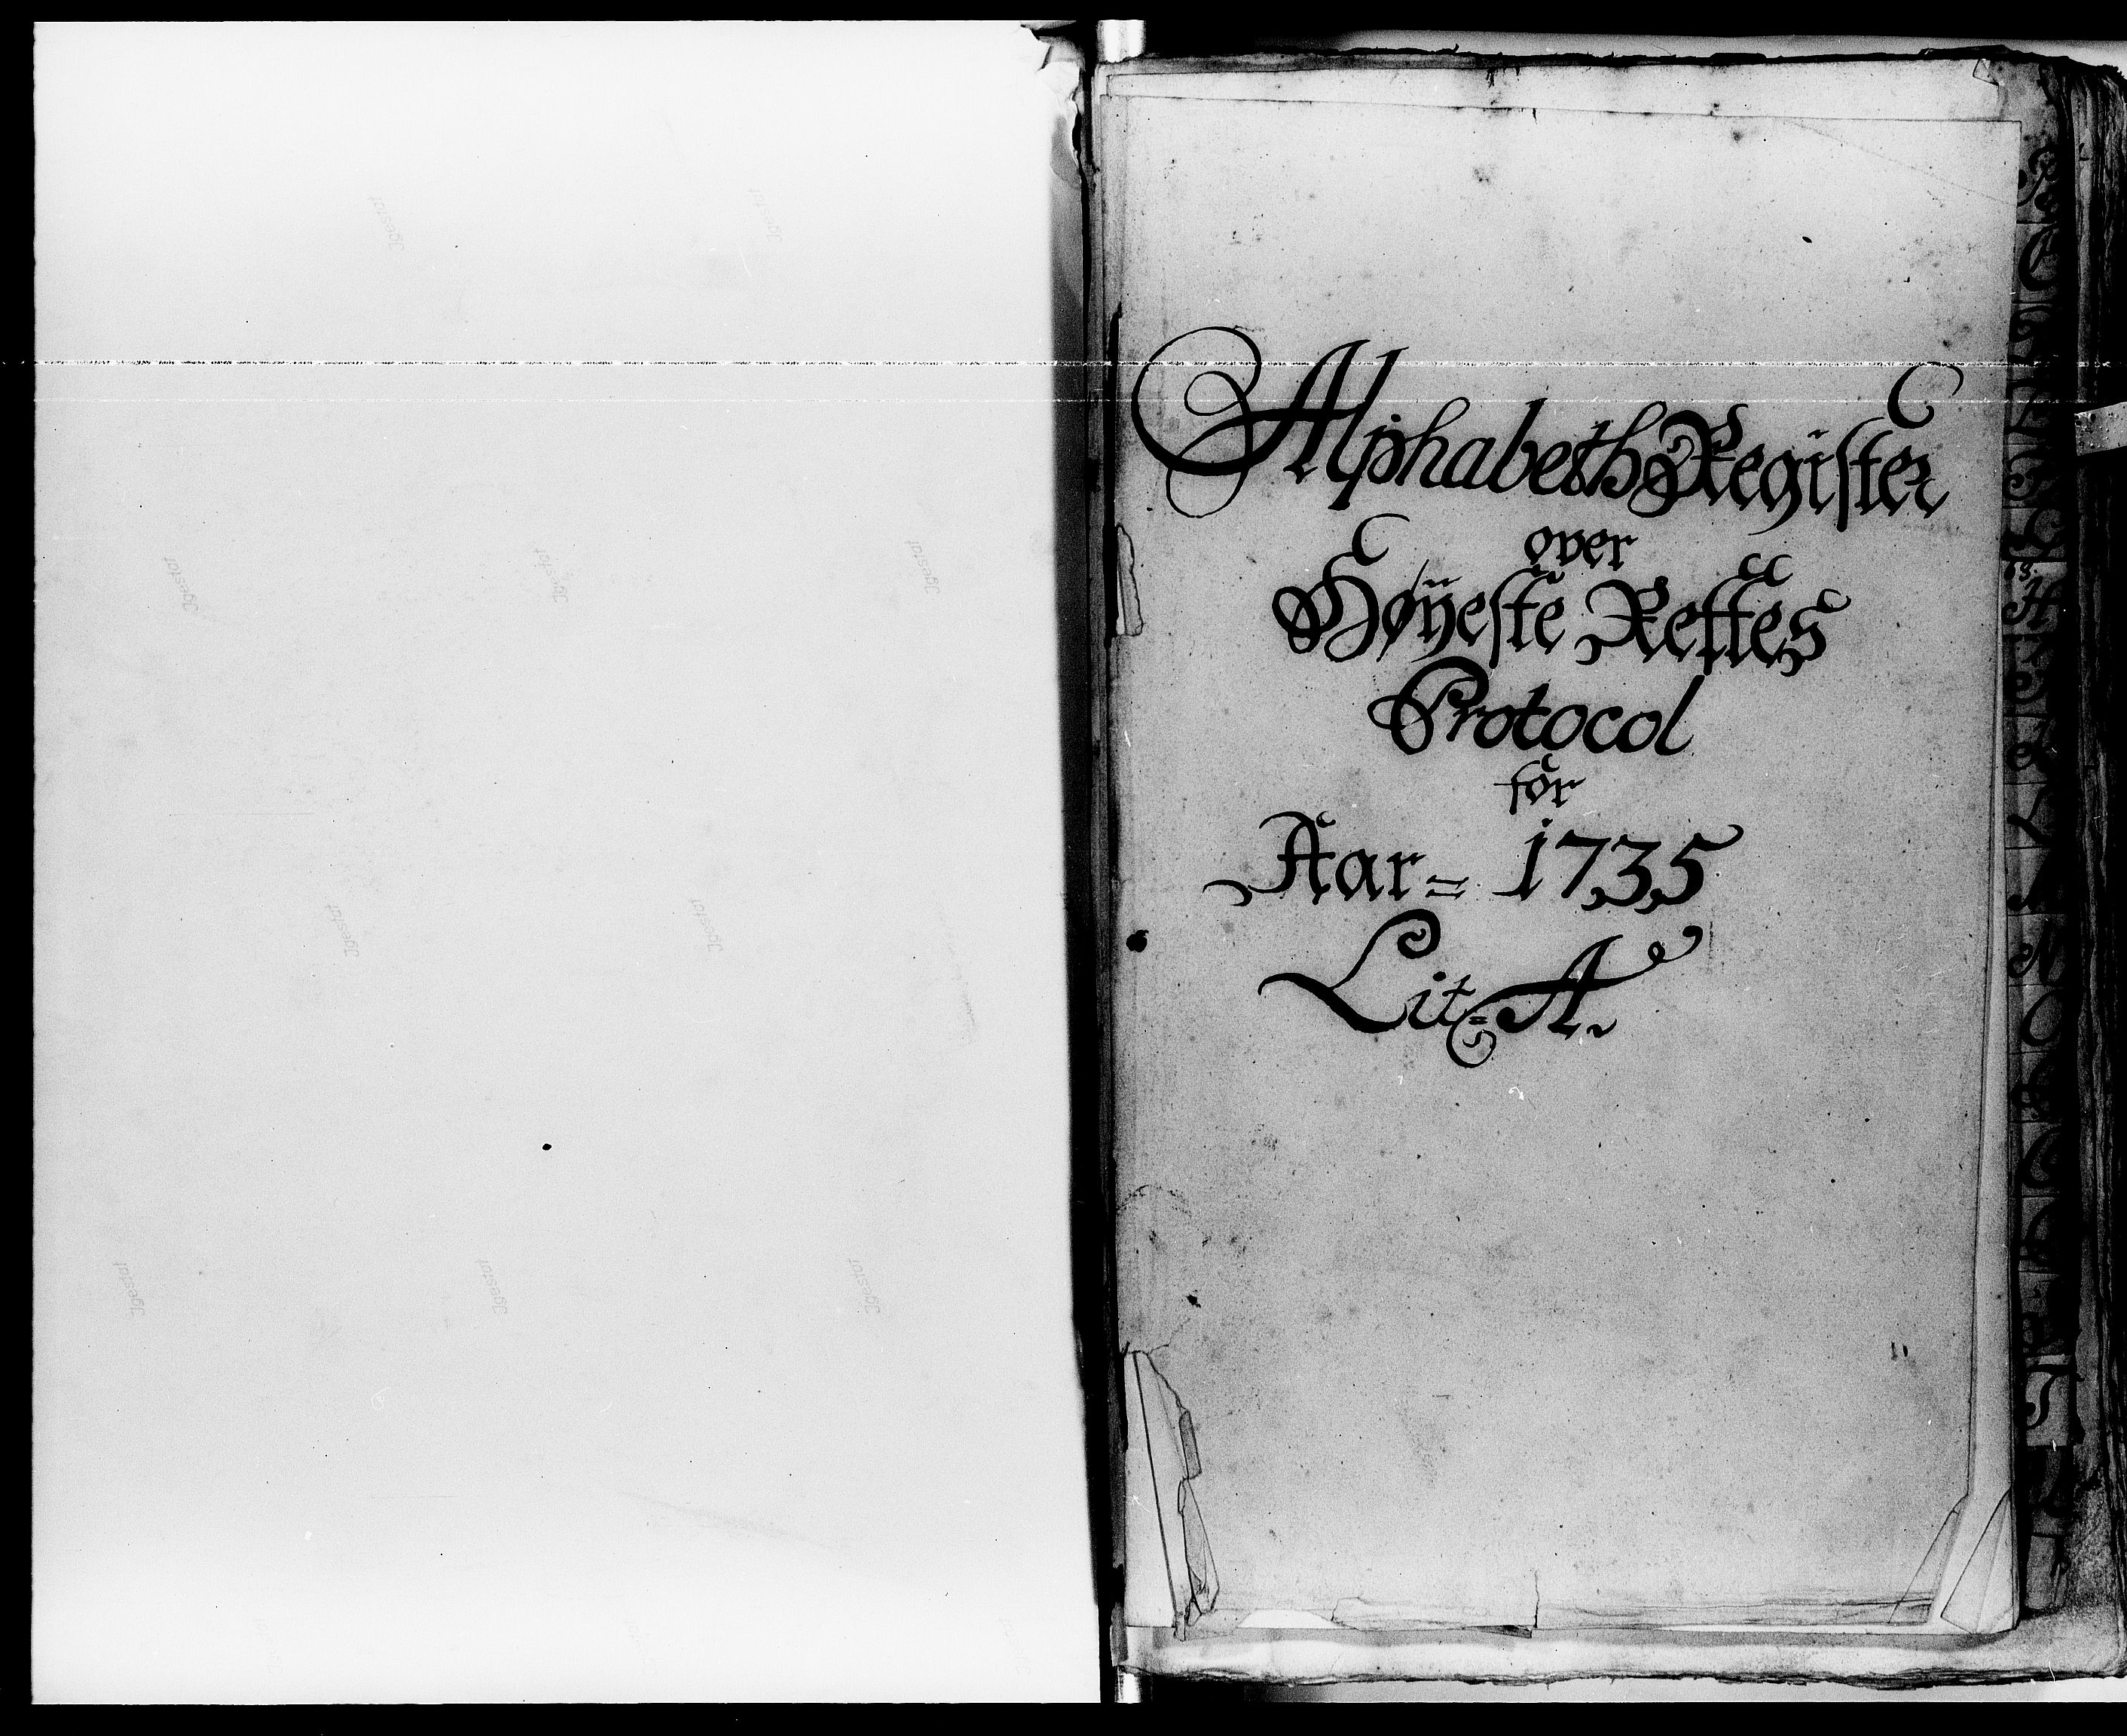 Alphabeth Register
over
Høÿeste Rettes
Protocol
for
Aar = 1735
Lit = A.